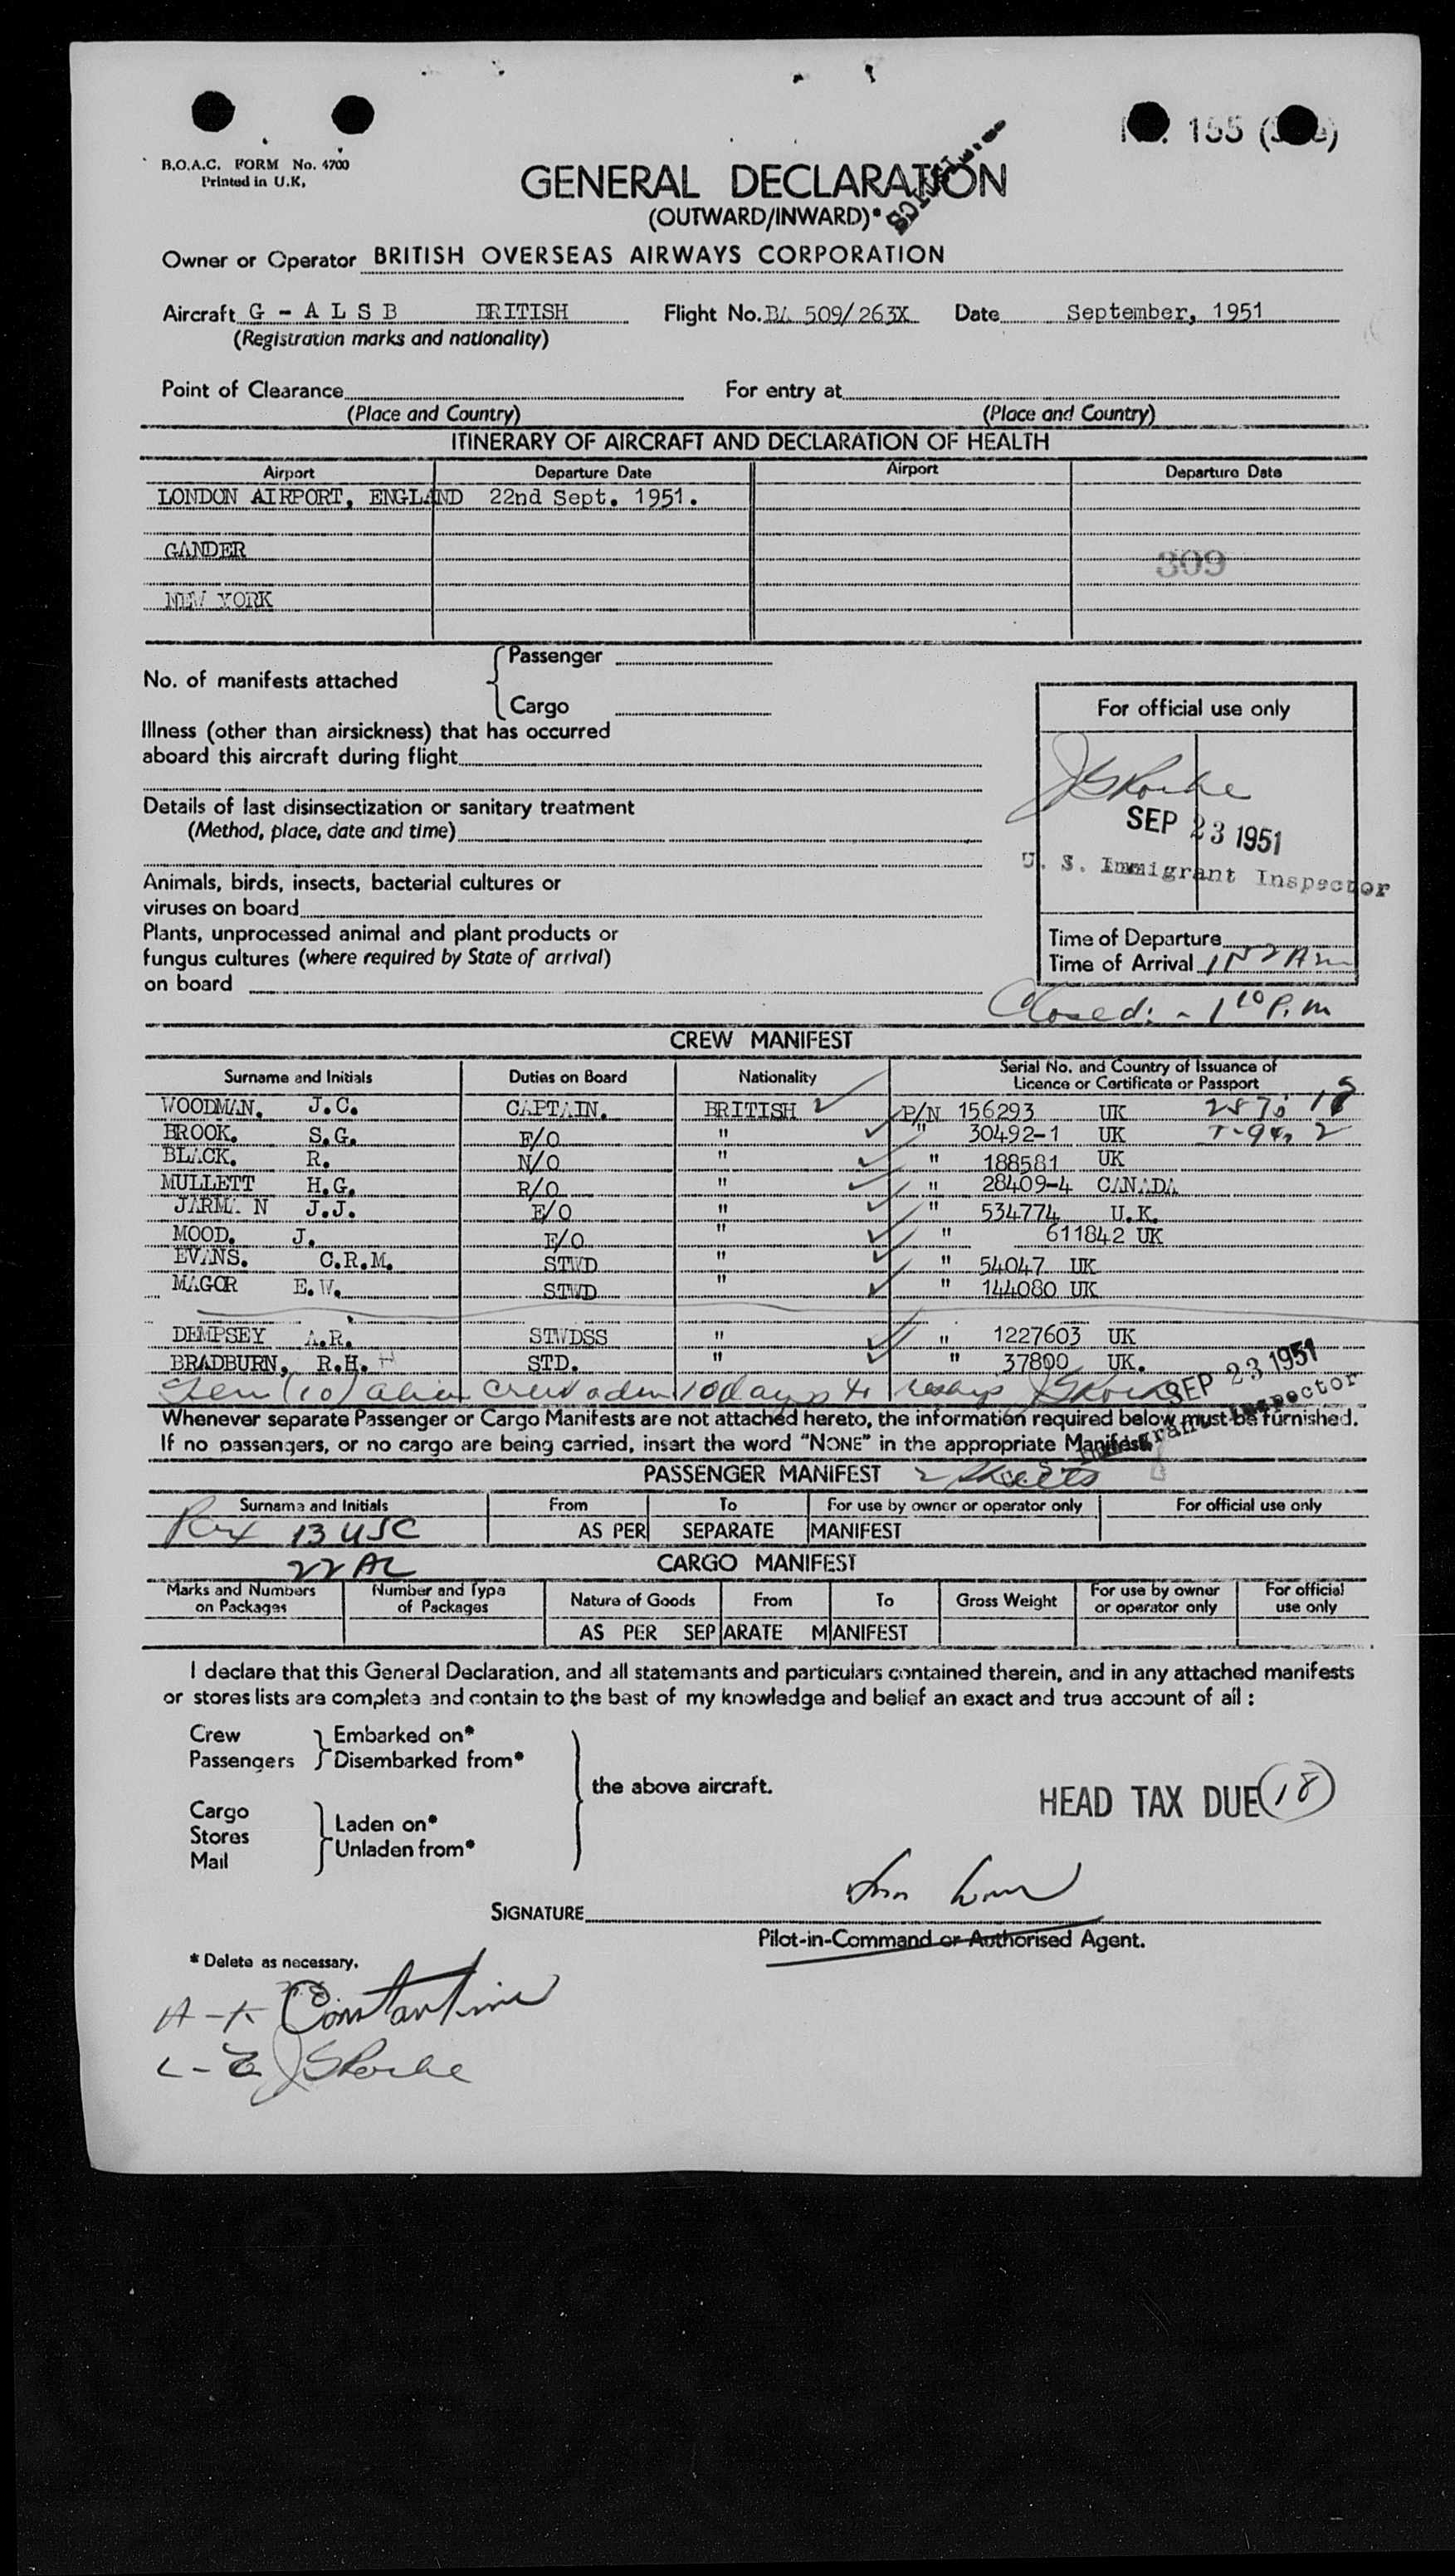 155
B.O.A.C. FORM No. 4700
Printed in U.K.
GENERAL DECLARATION
(OUTWARD/INWARD)*
Owner or Operator BRITISH OVERSEAS AIRWAYS CORPORATION
Aircraft G - A L S B BRITISH Flight No. BA 509/263X Date September, 1951
(Registration marks and nationality)
Point of Clearance For entry at
(Place and Country) (Place and Country)
ITINERARY OF AIRCRAFT AND DECLARATION OF HEALTH
Airport Departure Date Airport Departure Date
LONDON AIRPORT, ENGLAND 22nd Sept. 1951.
GANDER
309
NEW YORK
No. of manifests attached
Passenger
Cargo
For official use only
Illness (other than airsickness) that has occurred
aboard this aircraft during flight
Details of last disinsectization or sanitary treatment
(Method, place, date and time)
SEP 23 1951
U. S. Immigrant Inspector
Animals, birds, insects, bacterial cultures or
viruses on board
Plants, unprocessed animal and plant products or
fungus cultures (where required by State of arrival)
on board
Time of Departure
Time of Arrival
Closed: - 1 10 P.m
CREW MANIFEST
Surname and Initials Duties on Board Nationality Serial No. and Country of Issuance of
Licence or Certificate or Passport
WOODMAN. J.C. CAPTAIN. BRITISH P/N 156293 UK
BROOK. S.G. F/O " " 30492-1 UK
BLACK. R. N/O " " 188581 UK
MULLETT H.G. R/O " " 28409-4 CANADA
JARMAN J.J. E/O " " 534774 U.K.
MOOD. J. E/O " " 611842 UK
EVANS. C.R.M. STWD " " 54047 UK
MAGOR E.W. STWD " " 144080 UK
DEMPSEY A.R. STWDSS " " 1227603 UK
BRADBURN, R.H. STD. " " 37800 UK.
Ten (10) alien crew adm 10 days to
SEP 23 1951
Immigrant Inspector
Whenever separate Passenger or Cargo Manifests are not attached hereto, the information required below must be furnished.
If no passengers, or no cargo are being carried, insert the word "NONE" in the appropriate Manifest.
PASSENGER MANIFEST 2 Sheets
Surname and Initials From To For use by owner or operator only For official use only
13 USC AS PER SEPARATE MANIFEST
22 AL
CARGO MANIFEST
Marks and Numbers on Packages Number and Type of Packages Nature of Goods From To Gross Weight For use by owner or operator only For official use only
AS PER SEPARATE MANIFEST
I declare that this General Declaration, and all statements and particulars contained therein, and in any attached manifests
or stores lists are complete and contain to the best of my knowledge and belief an exact and true account of all :
Crew
Passengers
Embarked on*
Disembarked from*
the above aircraft.
Cargo
Stores
Mail
Laden on*
Unladen from*
HEAD TAX DUE 18
SIGNATURE
Pilot-in-Command or Authorised Agent.
* Delete as necessary.
A-K Constantine
L-Z